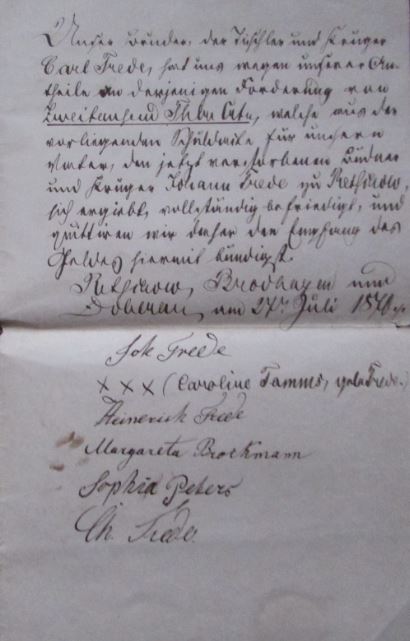 Unser Bruder, der Tischler und Krüger
Carl Frede, hat uns wegen unserer An-
theile an derjenigen Forderung von
Zweitausend Thlr Crt., welche aus der
vorliegenden Schuldacte für unsern
Vater, den jetzt verstorbenen Büdner
und Krüger Johann Frede zu Rethwisch,
sich ergiebt, vollständig befriedigt, und
quittiren wir daher den Empfang des
Geldes hiermit bündigst.
Rethwisch, Brodhagen und
Doberan, am 27. Juli 1870
Joh Freede
××× (Caroline Tamms, geb. Frede.)
Heinerich Frede
Margareta Brockmann
Sophia Peters
Ch. Frede.